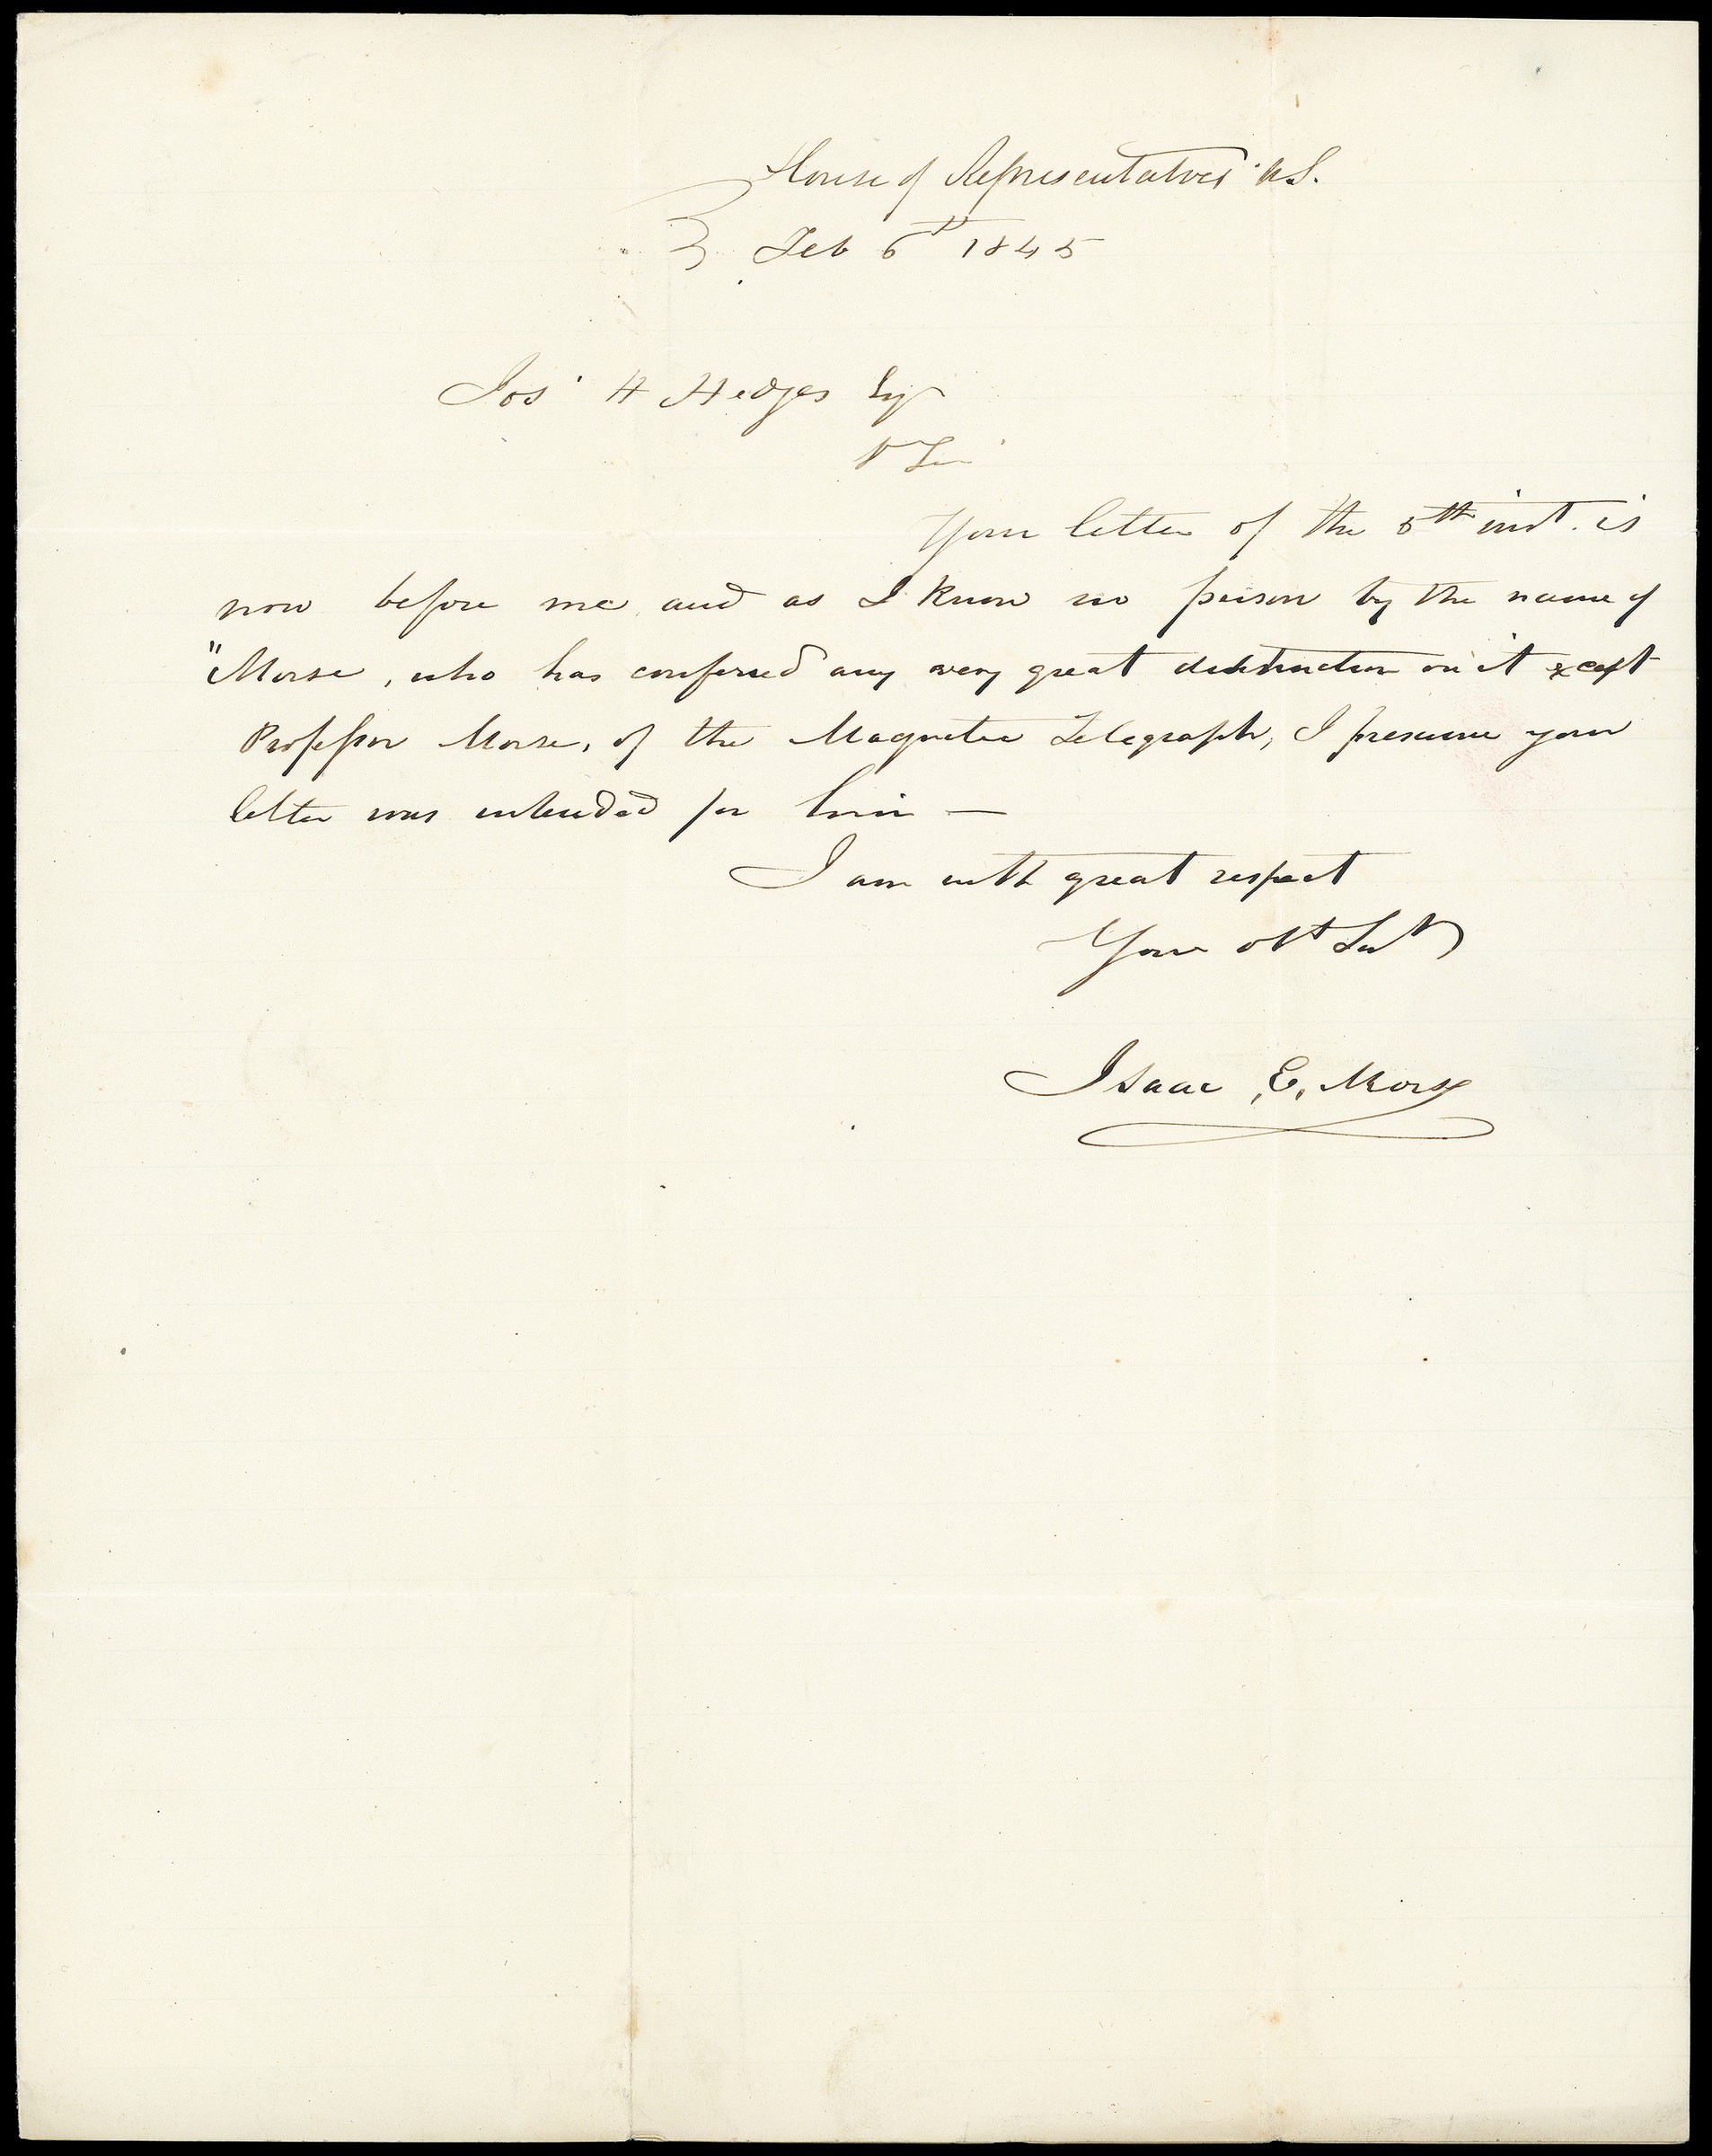 House of Representatives U.S.
Feb 6th 1845
Jos. H Hedges Esqr
Dr Sir
Your letter of the 5th inst. is
now before me and as I know no person by the name of
"Morse, who has conferred any very great distinction on it except
Professor Morse, of the Magnetic Telegraph, I presume your
letter was intended for him —
I am with great respect
Your obt Svt
Isaac E. Morse